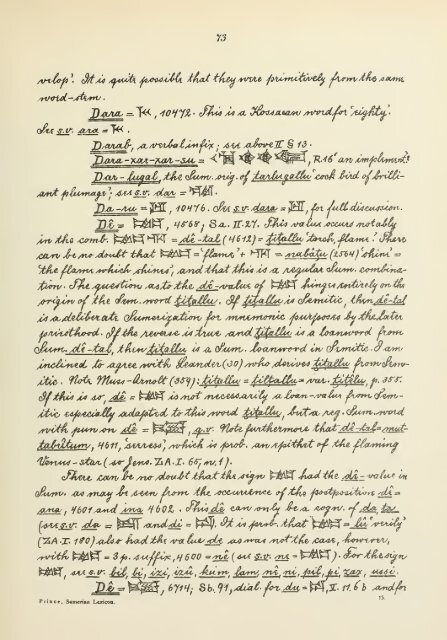 73
velop'. It is quite possible that they were primitively from the same
word-stem.
Dara = , 10472. This is a Kossaean word for 'eighty'.
See s.v. ara = .
Darab, a verbal infix; see above II § 13.
Dara-xar-xar-su = , R.16 'an implement'?
Dar-lugal, the Sum. orig. of tarlugallu 'cock bird of brilli-
ant plumage'; see s.v. dar = .
Da-ru = , 10476. See s.v. dara = , for full discussion.
Dê = , 4568, Sa. II.27. This value occurs notably
in the comb. = dê-tal (4612) = titallu 'torch, flame'. There
can be no doubt that = 'flame' + = nabâtu (2564) 'shine' =
'the flame which shines', and that this is a regular Sum. combina-
tion. The question as to the dê-value of hinges entirely on the
origin of the Sem. word titallu. If titallu is Semitic, then dê-tal
is a deliberate Sumerization for mnemonic purposes by the later
priesthood. If the reverse is true and titallu is a loanword from
Sum. dê-tal, then titallu is a Sum. loanword in Semitic. I am
inclined to agree with Leander (30) who derives titallu from Sem-
itic. Note Muss-Arnolt (359): titallu = = var. titêlu, p. 355.
If this is so, dê = is not necessarily a loan-value from Sem-
itic especially adapted to this word titallu, but a reg. Sum. word
with pun on dê = , q.v. Note furthermore that dê-tal = mut-
tabrîtum, 4611, which is prob. an epithet of the flaming
Venus-star (so Jens. ZA. I. 65, n. 1).
There can be no doubt that the sign had the dê-value in
Sum. as may be seen from the occurrence of the postpositive di =
ana, 4601 and ina 4602. This dê can only be a cogn. of da, ta
(see s.v. da = and di = ). It is prob. that = lû 'verily'
(ZA. I. 180) also had the value de as was not the case, however,
with = 3 p. suffix, 4600 = nê (see s.v. ne = ). For the sign
, see s.v. bil, bi, izi, izû, kûm, lam, nê, ni, pil, pi, zax, ussi.
Dê = , 6714; Sb. 91, dial. for du = , II. 11. 6 b and for
Prince, Sumerian Lexicon. 15